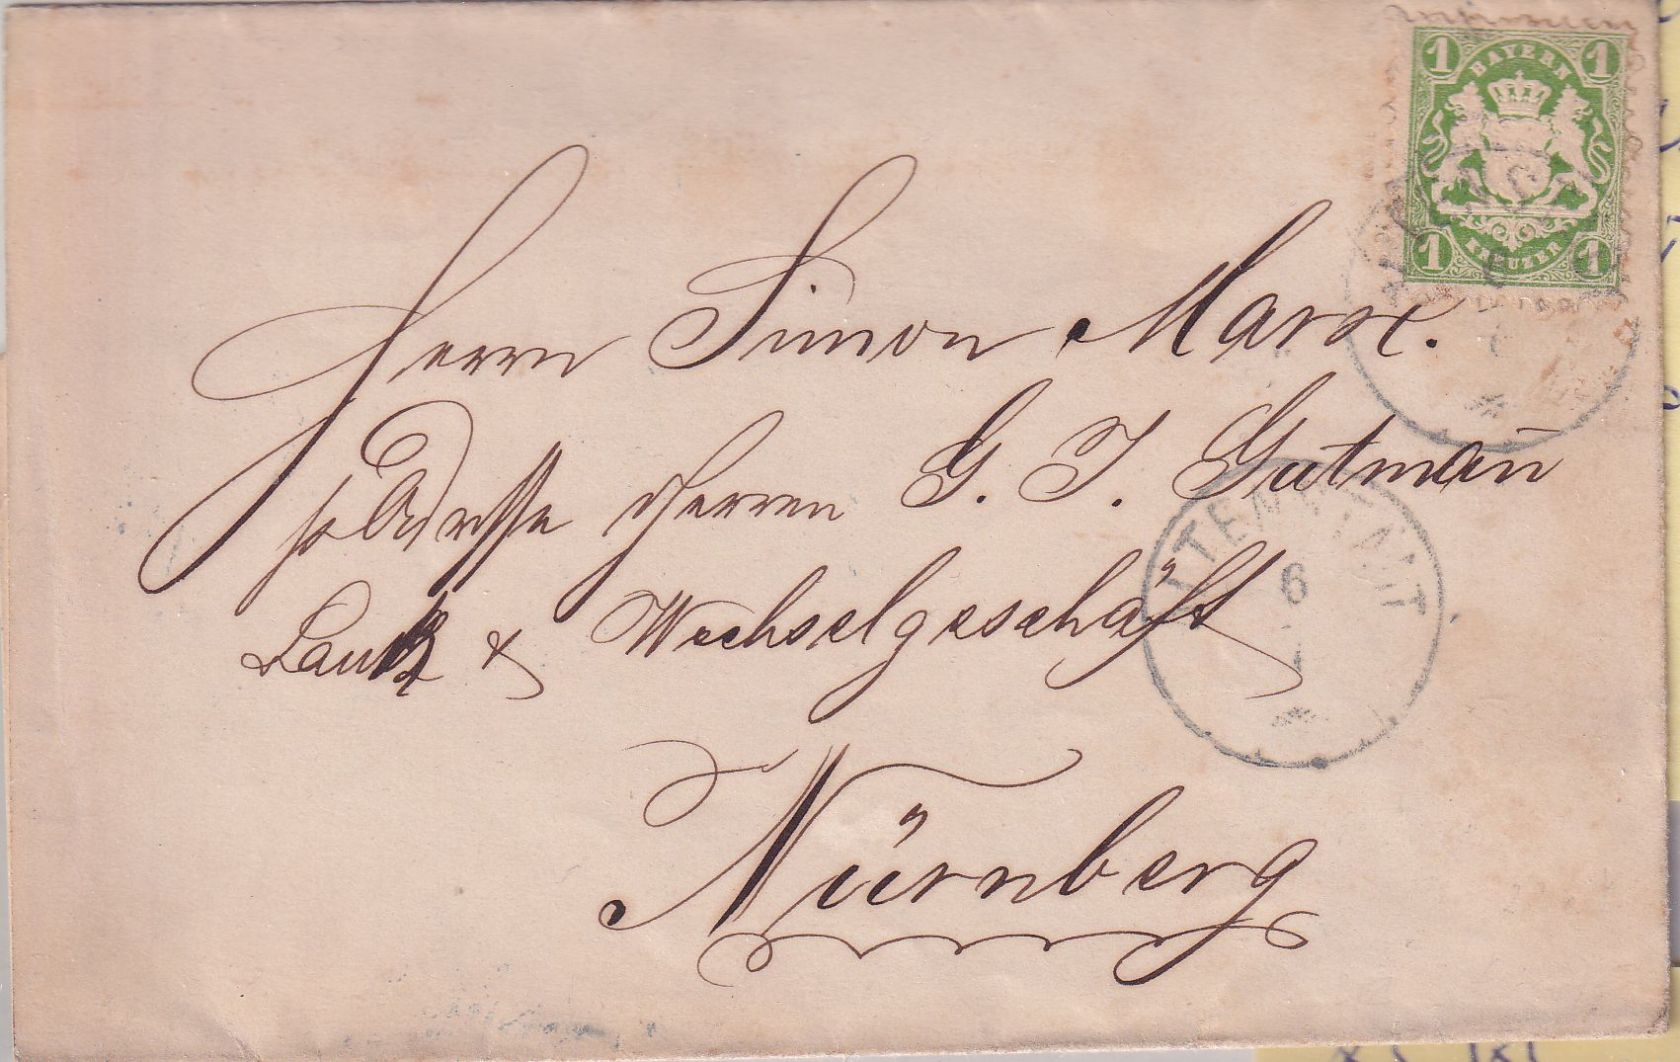 1 BAYERN 1
1 KREUZER 1
Herrn Simon Marx.
p Adresse Herren G. J. Gutman̄
Bank & Wechselgeschäft
6
Nürnberg